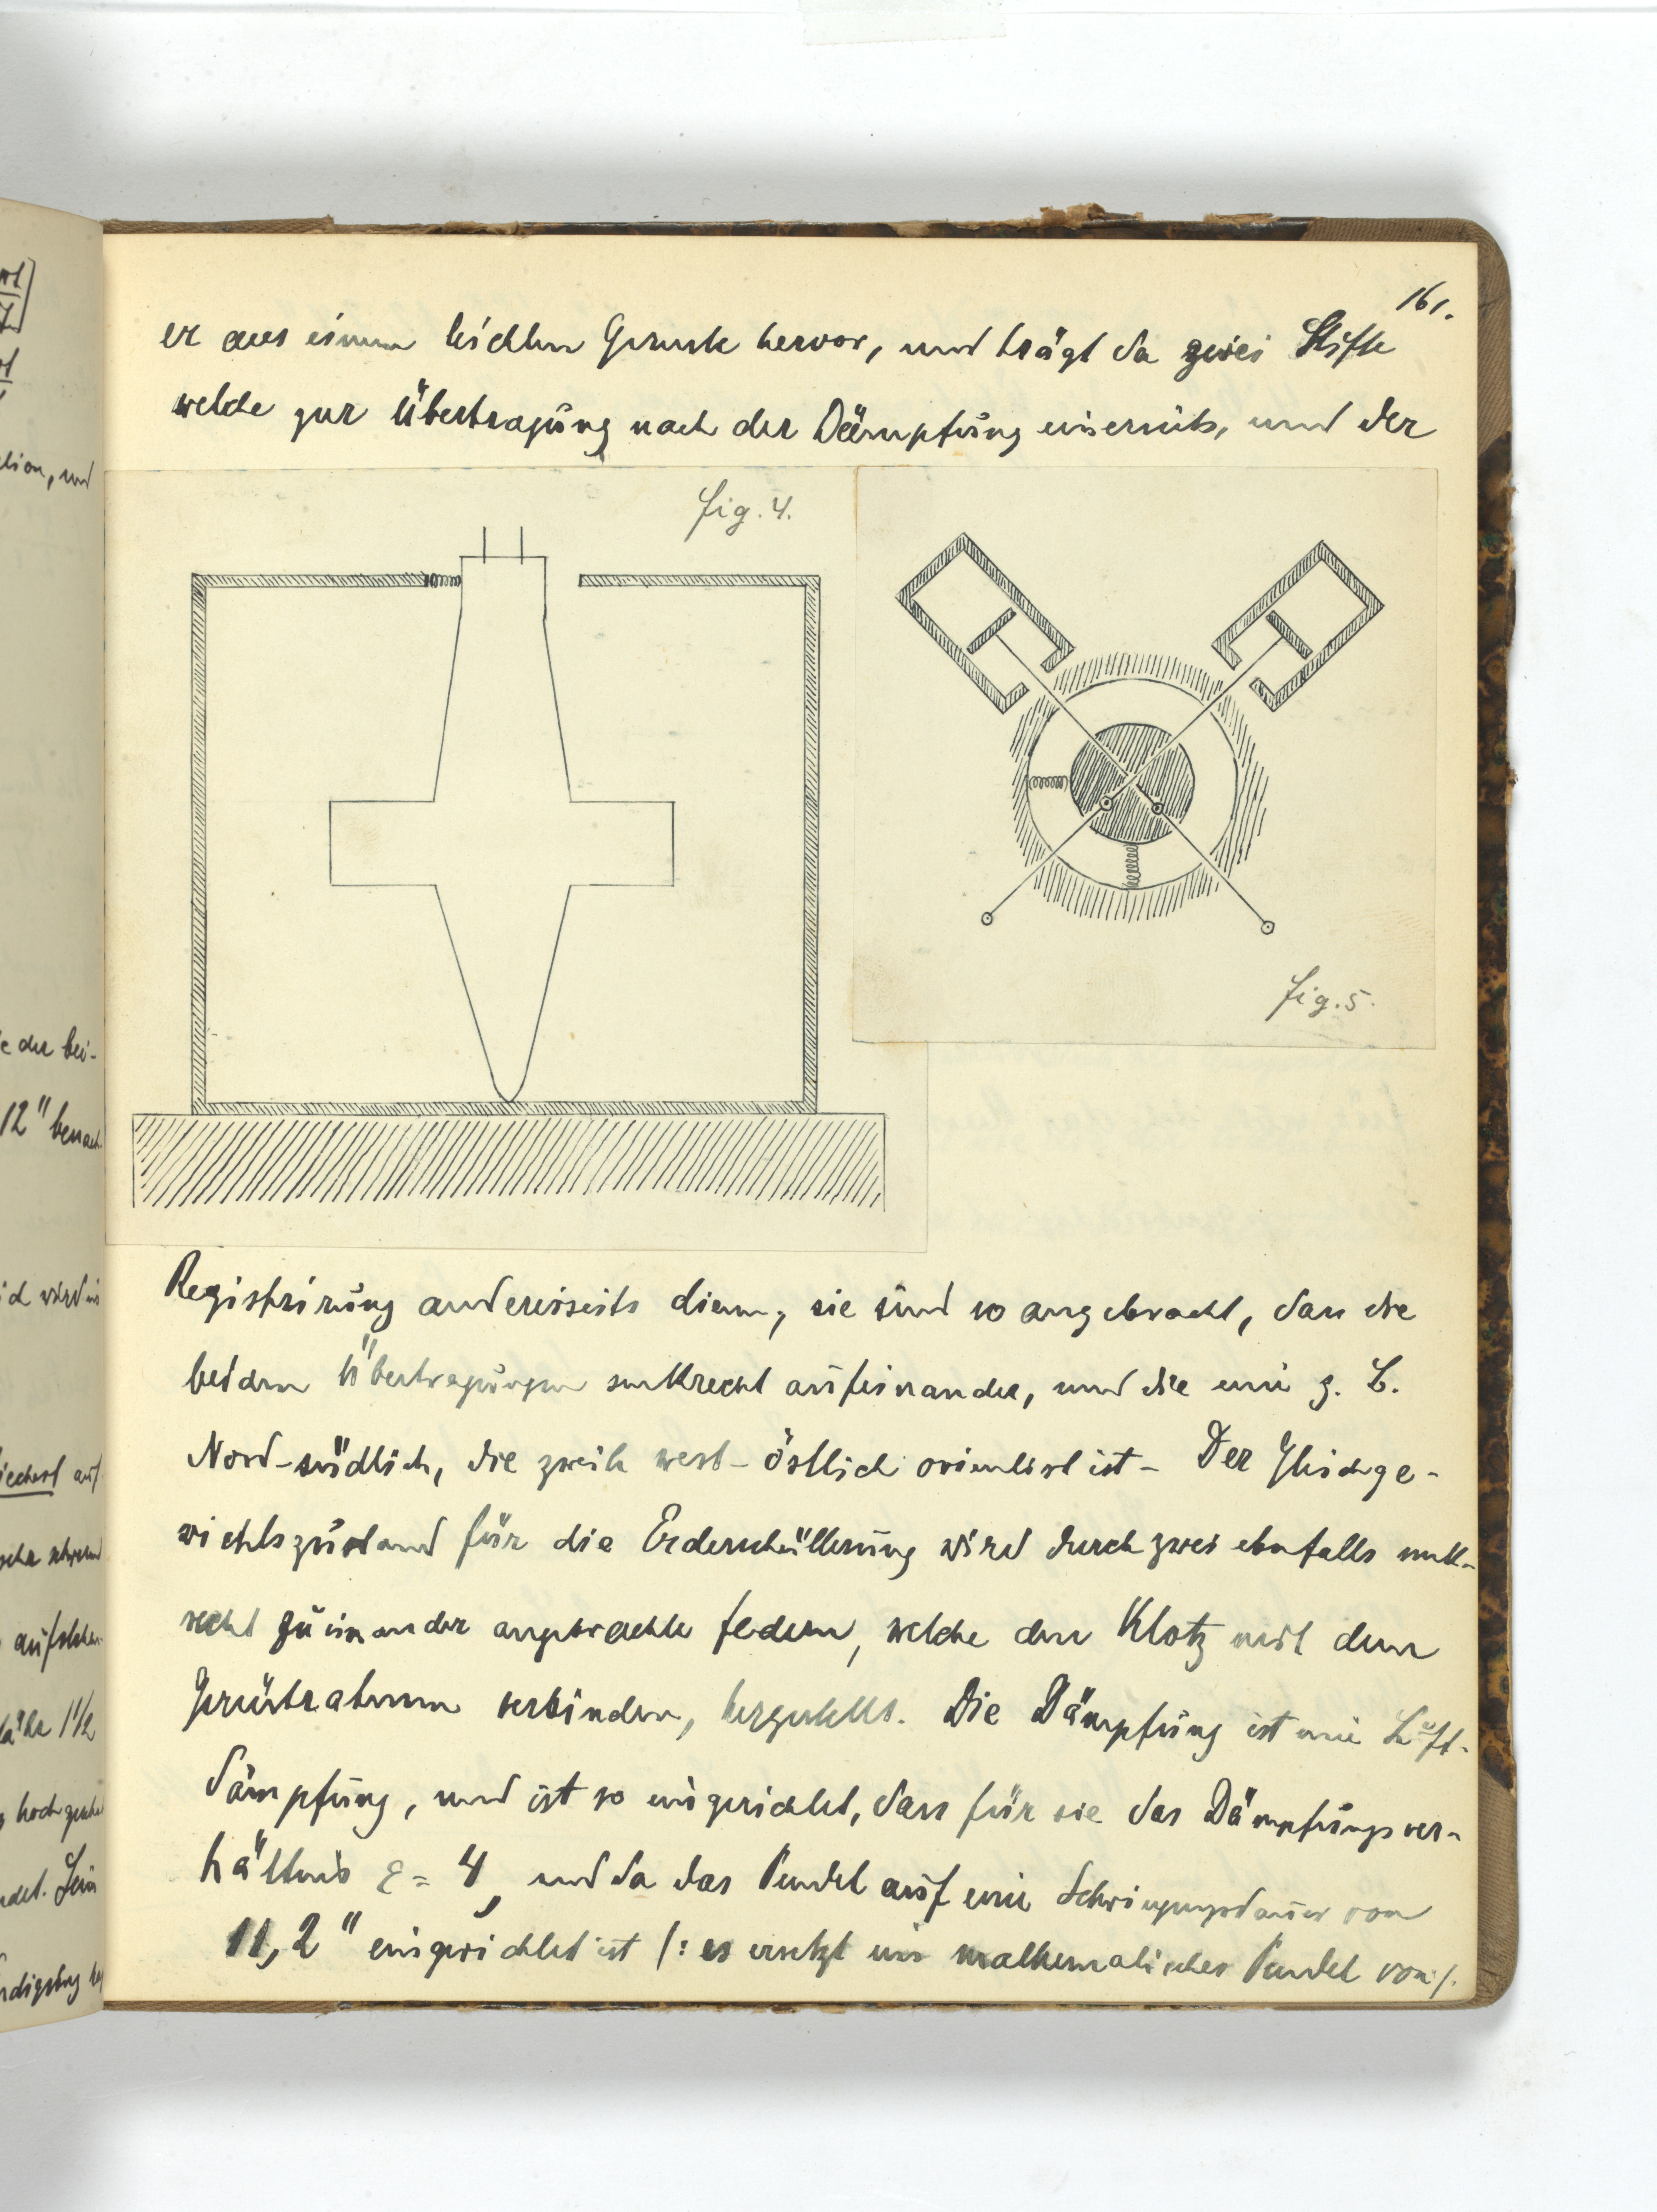 161.
er aus einem leichten Gerüste hervor, und trägt da zwei Stifte
welche zur Übertragung nach der Dämpfung einerseits, und der
fig. 4.
fig. 5.
Registrirung andererseits dienen, sie sind so angebracht, dass die
beiden Übertragungen senkrecht aufeinander, und die eine z. B.
Nord-südlich, die zweite west-östlich orientirt ist - Der Gleichge-
wichtszustand für die Erderschütterung wird durch zwei ebenfalls senk-
recht zu einander angebrachte federn, welche den Klotz mit dem
Gerüstrahmen verbinden, hergestellt. Die Dämpfung ist eine Luft-
dämpfung, und ist so eingerichtet, dass für sie das Dämpfungsver-
hältnis ε = 4, und da das Pendel auf eine Schwingungsdauer von
11,2" eingerichtet ist /: es ersetzt ein mathematisches Pendel von /.
lion, und
e der bei-
12" benach
id wird in
iechert auf
sehr schwer
läche 1 1/2
ndet. Sein